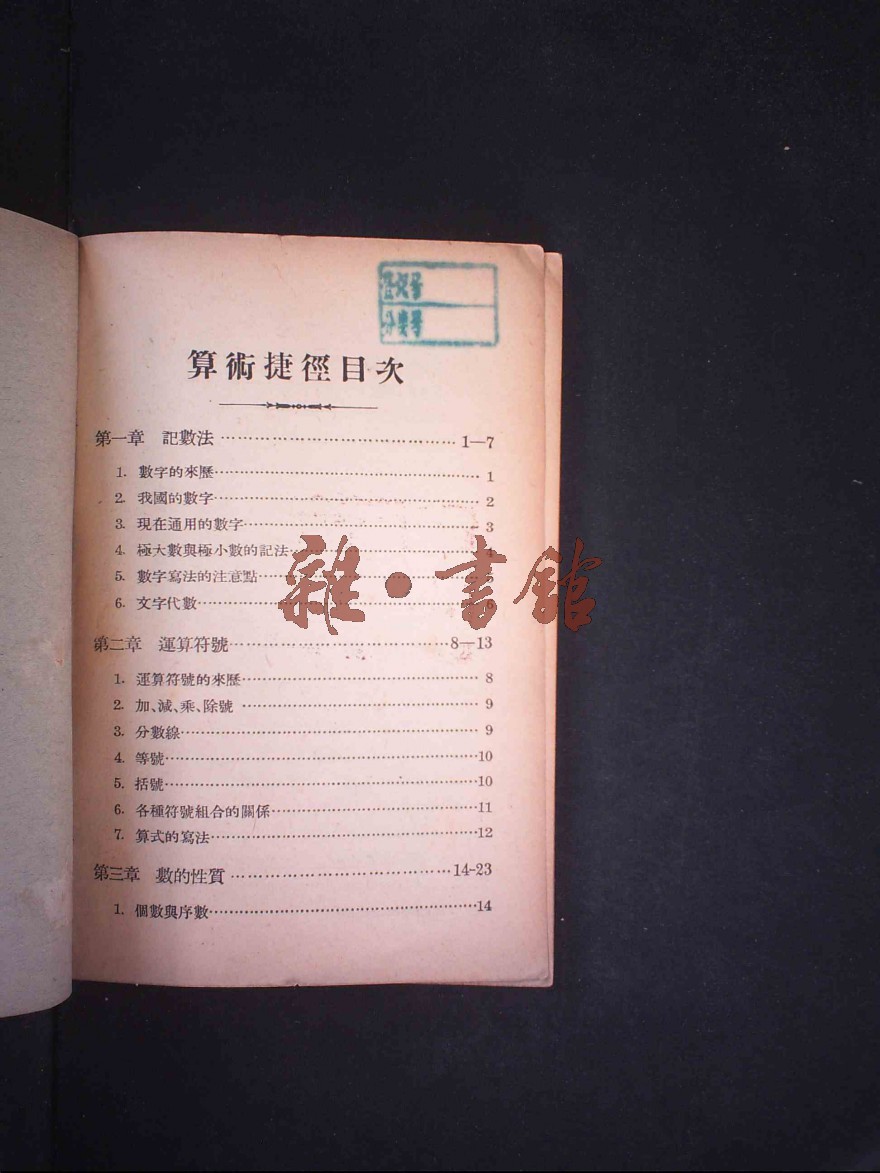 登記號
分類號
算術捷徑目次
第一章 記數法……………………………………1—7
1. 數字的來歷……………………………………1
2. 我國的數字……………………………………2
3. 現在通用的數字……………………………………3
4. 極大數與極小數的記法……………………………………
5. 數字寫法的注意點……………………………………
6. 文字代數……………………………………
雜·書館
第二章 運算符號……………………………………8—13
1. 運算符號的來歷……………………………………8
2. 加、減、乘、除號……………………………………9
3. 分數線……………………………………9
4. 等號……………………………………10
5. 括號……………………………………10
6. 各種符號組合的關係……………………………………11
7. 算式的寫法……………………………………12
第三章 數的性質……………………………………14-23
1. 個數與序數……………………………………14